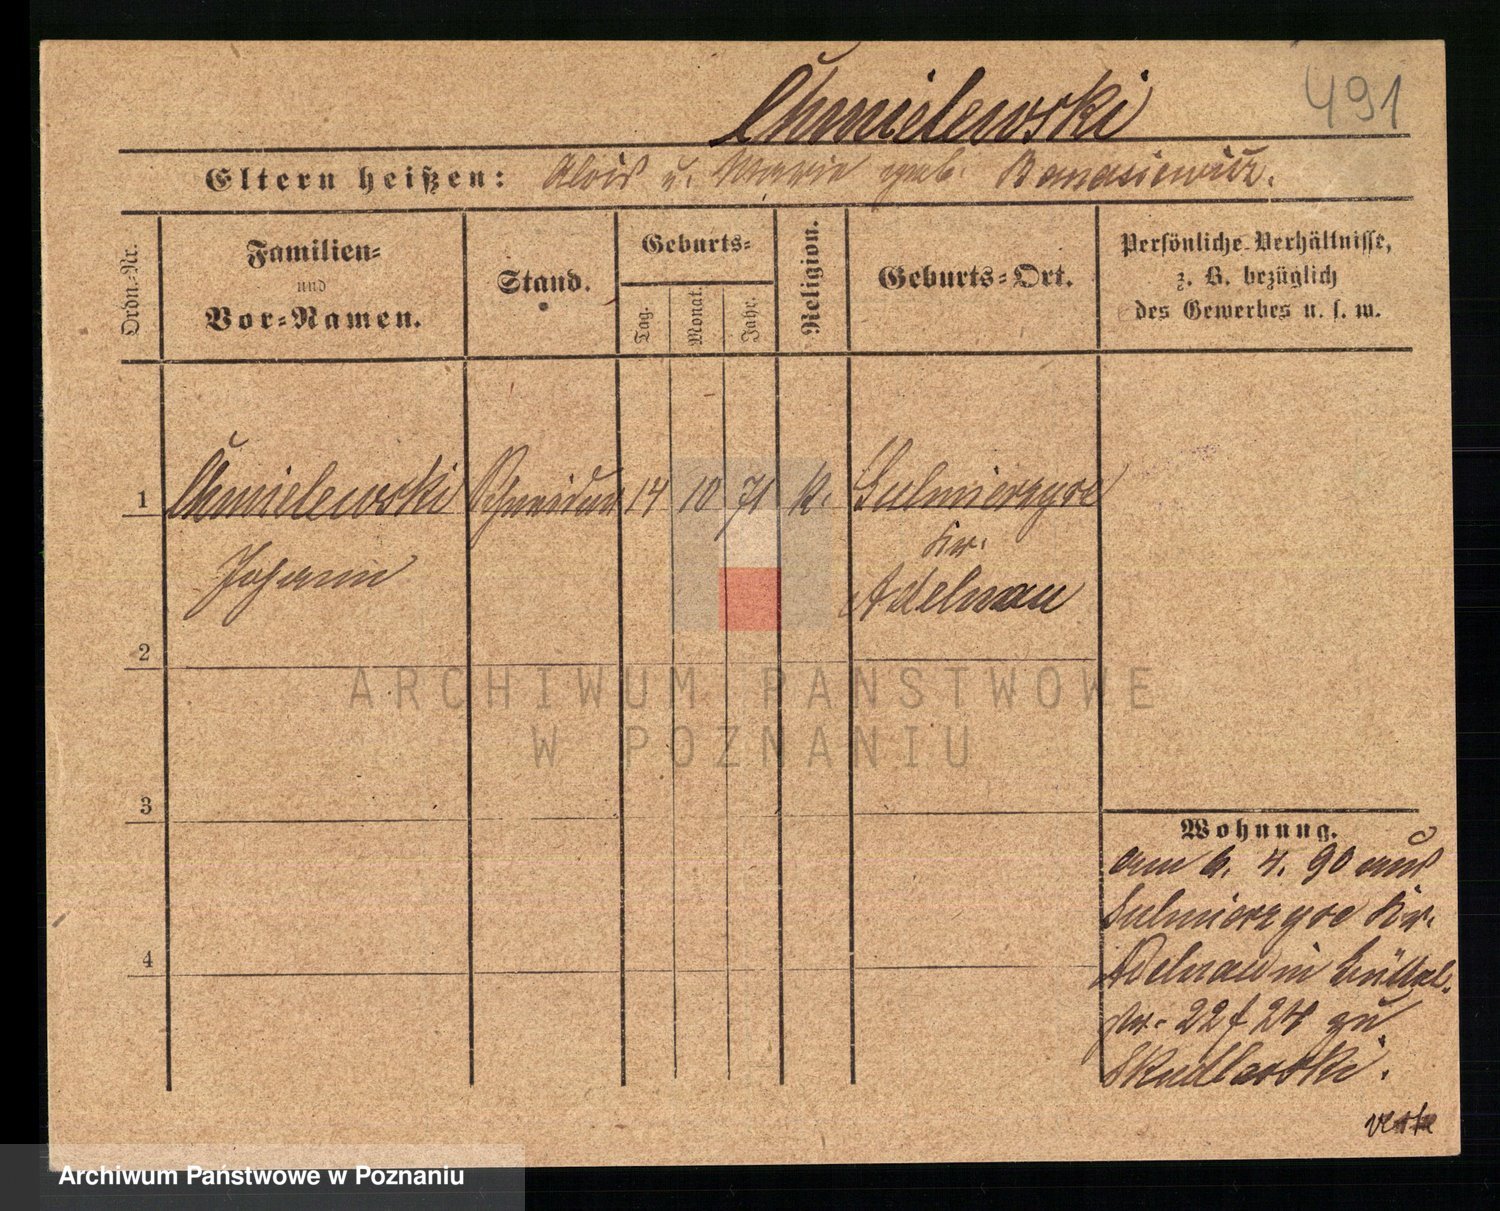 491
Chmielewski
Eltern heißen: Alois u. Marie geb. Banasiewicz.
Ordn.-Nr.
Familien-
und
Vor-Namen.
Stand.
Geburts-
Tag.
Monat.
Jahr.
Religion.
Geburts-Ort.
Persönliche Verhältnisse,
z. B. bezüglich
des Gewerbes u. s. w.
1 Chmielewski 14 10 71 k. Sulmierzyce
Johann
Kr.
Adelnau
2
3
4
Wohnung.
am 6. 4. 90 aus
Sulmierzyce Kr.
Adelnau in
str. 22/24 zu
ARCHIWUM PAŃSTWOWE
W POZNANIU
Archiwum Państwowe w Poznaniu